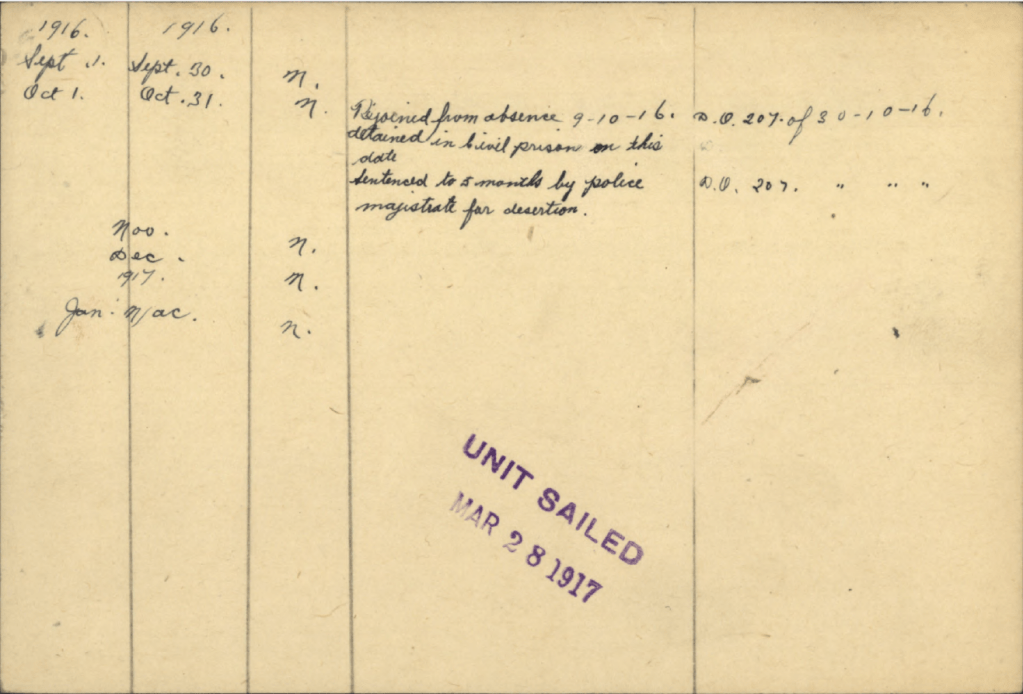 1916. 1916.
Sept. 1. Sept. 30. n.
Oct 1. Oct. 31. n. Rejoined from absence 9-10-16. D.O. 207. of 30-10-16.
detained in Civil prison on this
date
Sentenced to 5 months by police D.O. 207. " " "
magistrate for desertion.
Nov. n.
Dec. n.
1917.
Jan. n.
UNIT SAILED
MAR 28 1917